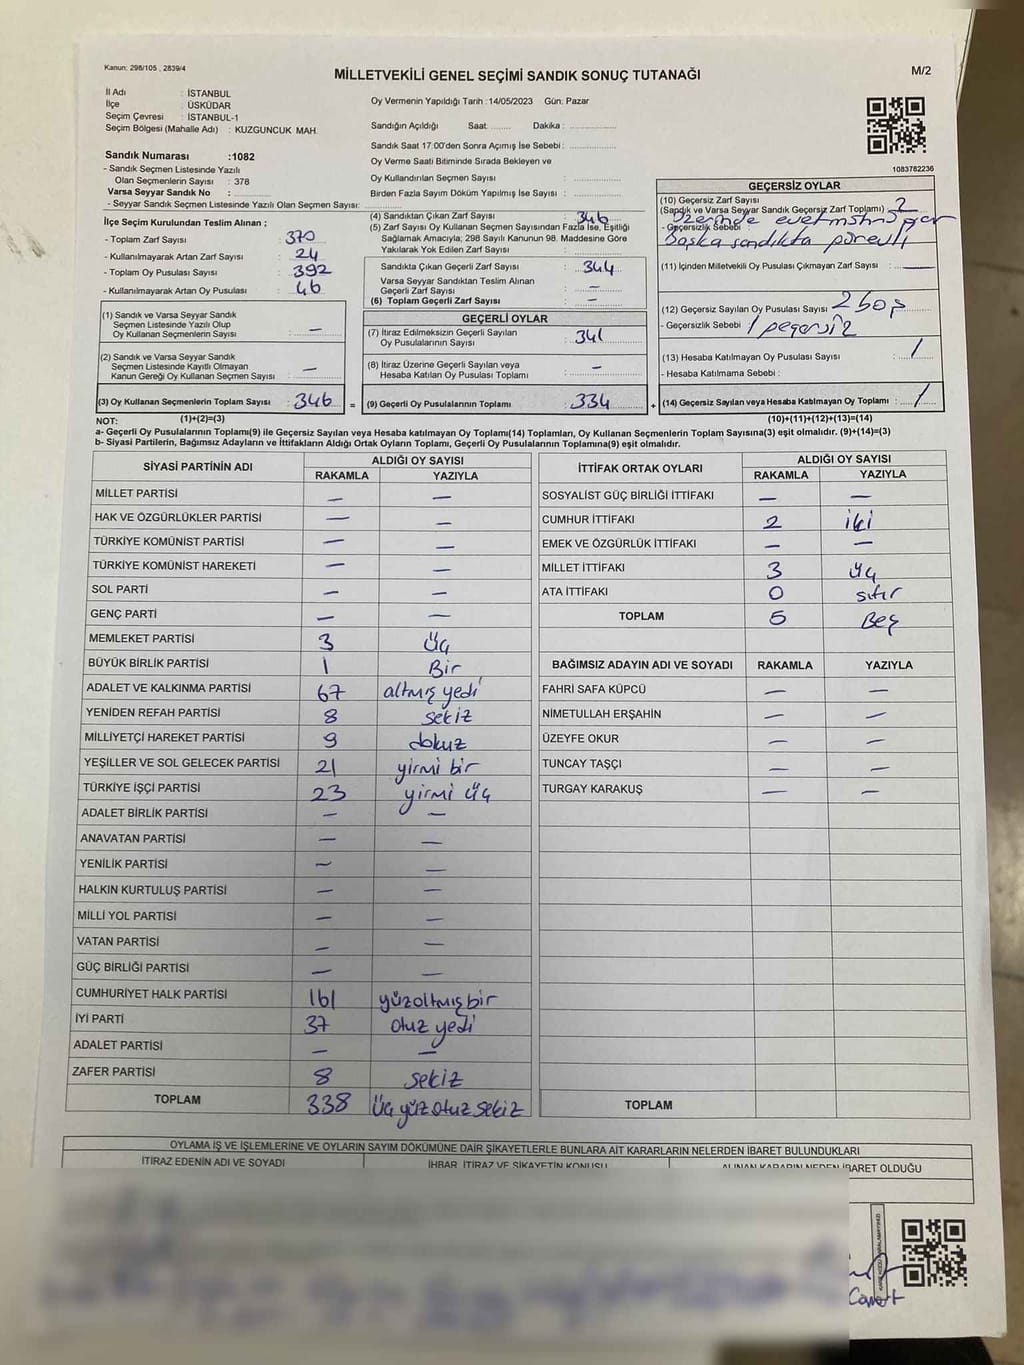 Kanun: 298/105 , 2839/4
MİLLETVEKİLİ GENEL SEÇİMİ SANDIK SONUÇ TUTANAĞI
M/2
İl Adı : İSTANBUL
İlçe : ÜSKÜDAR
Seçim Çevresi : İSTANBUL-1
Seçim Bölgesi (Mahalle Adı) : KUZGUNCUK MAH.
Sandık Numarası :1082
- Sandık Seçmen Listesinde Yazılı
Olan Seçmenlerin Sayısı : 378
Varsa Seyyar Sandık No :
- Seyyar Sandık Seçmen Listesinde Yazılı Olan Seçmen Sayısı:
Oy Vermenin Yapıldığı Tarih :14/05/2023 Gün: Pazar
Sandığın Açıldığı Saat: Dakika :
Sandık Saat 17:00'den Sonra Açımış İse Sebebi :
Oy Verme Saati Bitiminde Sırada Bekleyen ve
Oy Kullandırılan Seçmen Sayısı :
Birden Fazla Sayım Döküm Yapılmış İse Sayısı :
1083782236
İlçe Seçim Kurulundan Teslim Alınan ;
- Toplam Zarf Sayısı : 370
- Kullanılmayarak Artan Zarf Sayısı : 24
- Toplam Oy Pusulası Sayısı : 392
- Kullanılmayarak Artan Oy Pusulası : 46
(1) Sandık ve Varsa Seyyar Sandık
Seçmen Listesinde Yazılı Olup
Oy Kullanan Seçmenlerin Sayısı : —
(2) Sandık ve Varsa Seyyar Sandık
Seçmen Listesinde Kayıtlı Olmayan
Kanun Gereği Oy Kullanan Seçmen Sayısı : —
(3) Oy Kullanan Seçmenlerin Toplam Sayısı : 346 =
(4) Sandıktan Çıkan Zarf Sayısı : 346
(5) Zarf Sayısı Oy Kullanan Seçmen Sayısından Fazla İse, Eşitliği
Sağlamak Amacıyla; 298 Sayılı Kanunun 98. Maddesine Göre
Yakılarak Yok Edilen Zarf Sayısı :
Sandıkta Çıkan Geçerli Zarf Sayısı : 344
Varsa Seyyar Sandıktan Teslim Alınan
Geçerli Zarf Sayısı : —
(6) Toplam Geçerli Zarf Sayısı : —
GEÇERLİ OYLAR
(7) İtiraz Edilmeksizin Geçerli Sayılan
Oy Pusulalarının Sayısı : 341
(8) İtiraz Üzerine Geçerli Sayılan veya
Hesaba Katılan Oy Pusulası Toplamı : —
(9) Geçerli Oy Pusulalarının Toplamı : 334 +
GEÇERSİZ OYLAR
(10) Geçersiz Zarf Sayısı
(Sandık ve Varsa Seyyar Sandık Geçersiz Zarf Toplamı) 2
- Geçersizlik Sebebi : üzerinde evet mührü
başka sandıkta
(11) İçinden Milletvekili Oy Pusulası Çıkmayan Zarf Sayısı : —
(12) Geçersiz Sayılan Oy Pusulası Sayısı : 2 boş
- Geçersizlik Sebebi 1 geçersiz
(13) Hesaba Katılmayan Oy Pusulası Sayısı : 1
- Hesaba Katılmama Sebebi :
(14) Geçersiz Sayılan veya Hesaba Katılmayan Oy Toplamı : 1
NOT: (1)+(2)=(3) (10)+(11)+(12)+(13)=(14)
a- Geçerli Oy Pusulalarının Toplamı(9) ile Geçersiz Sayılan veya Hesaba Katılmayan oy Toplamı(14) Toplamları, Oy Kullanan Seçmenlerin Toplam Sayısına(3) eşit olmalıdır. (9)+(14)=(3)
b- Siyasi Partilerin, Bağımsız Adayların ve İttifakların Aldığı Ortak Oyların Toplamı, Geçerli Oy Pusulalarının Toplamına(9) eşit olmalıdır.
SİYASİ PARTİNİN ADI ALDIĞI OY SAYISI
RAKAMLA YAZIYLA
MİLLET PARTİSİ — —
HAK VE ÖZGÜRLÜKLER PARTİSİ — —
TÜRKİYE KOMÜNİST PARTİSİ — —
TÜRKİYE KOMÜNİST HAREKETİ — —
SOL PARTİ — —
GENÇ PARTİ — —
MEMLEKET PARTİSİ 3 üç
BÜYÜK BİRLİK PARTİSİ 1 Bir
ADALET VE KALKINMA PARTİSİ 67 altmış yedi
YENİDEN REFAH PARTİSİ 8 sekiz
MİLLİYETÇİ HAREKET PARTİSİ 9 dokuz
YEŞİLLER VE SOL GELECEK PARTİSİ 21 yirmi bir
TÜRKİYE İŞÇİ PARTİSİ 23 yirmi üç
ADALET BİRLİK PARTİSİ — —
ANAVATAN PARTİSİ — —
YENİLİK PARTİSİ — —
HALKIN KURTULUŞ PARTİSİ — —
MİLLİ YOL PARTİSİ — —
VATAN PARTİSİ — —
GÜÇ BİRLİĞİ PARTİSİ — —
CUMHURİYET HALK PARTİSİ 161 yüzaltmışbir
İYİ PARTİ 37 otuz yedi
ADALET PARTİSİ — —
ZAFER PARTİSİ 8 sekiz
TOPLAM 338 üç yüz otuz sekiz
İTTİFAK ORTAK OYLARI ALDIĞI OY SAYISI
RAKAMLA YAZIYLA
SOSYALİST GÜÇ BİRLİĞİ İTTİFAKI — —
CUMHUR İTTİFAKI 2 iki
EMEK VE ÖZGÜRLÜK İTTİFAKI — —
MİLLET İTTİFAKI 3 üç
ATA İTTİFAKI 0 sıfır
TOPLAM 5 Beş
BAĞIMSIZ ADAYIN ADI VE SOYADI RAKAMLA YAZIYLA
FAHRİ SAFA KÜPCÜ — —
NİMETULLAH ERŞAHİN — —
ÜZEYFE OKUR — —
TUNCAY TAŞÇI — —
TURGAY KARAKUŞ — —
TOPLAM
OYLAMA İŞ VE İŞLEMLERİNE VE OYLARIN SAYIM DÖKÜMÜNE DAİR ŞİKAYETLERLE BUNLARA AİT KARARLARIN NELERDEN İBARET BULUNDUKLARI
İTİRAZ EDENİN ADI VE SOYADI İHBAR, İTİRAZ VE ŞİKAYETİN KONUSU ALINAN KARARIN NEDEN İBARET OLDUĞU